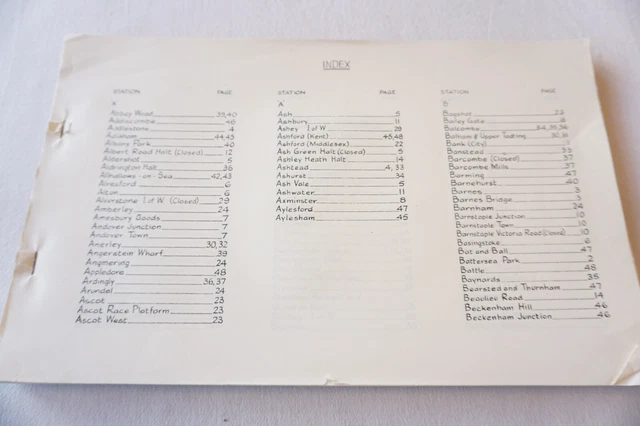 INDEX
STATION PAGE
'A'
Abbey Wood 39,40
Addiscombe 46
Addlestone 4
Adisham 44,45
Albany Park 40
Albert Road Halt (Closed) 12
Aldershot 5
Aldrington Halt 36
Allhallows-on-Sea 42,43
Alresford 6
Alton 6
Alverstone I of W. (Closed) 29
Amberley 24
Amesbury Goods 7
Andover Junction 7
Andover Town 7
Anerley 30,32
Angerstein Wharf 39
Angmering 24
Appledore 48
Ardingly 36,37
Arundel 24
Ascot 23
Ascot Race Platform 23
Ascot West 23
STATION PAGE
'A'
Ash 5
Ashbury 11
Ashey I of W. 29
Ashford (Kent) 45,48
Ashford (Middlesex) 22
Ash Green Halt (Closed) 5
Ashley Heath Halt 14
Ashtead 4,33
Ashurst 34
Ash Vale 5
Ashwater 11
Axminster 8
Aylesford 47
Aylesham 45
STATION PAGE
'B'
Bagshot 23
Bailey Gate 8
Balcombe
Balham & Upper Tooting 30,31
Bank (City) 1
Banstead 33
Barcombe (Closed) 37
Barcombe Mills 37
Barming 47
Barnehurst 40
Barnes 3
Barnes Bridge 3
Barnham 24
Barnstaple Junction 10
Barnstaple Town 10
Barnstaple Victoria Road (Closed) 10
Basingstoke 6
Bat and Ball 47
Battersea Park 2
Battle 48
Baynards 35
Bearsted and Thurnham 47
Beaulieu Road 14
Beckenham Hill 46
Beckenham Junction 46